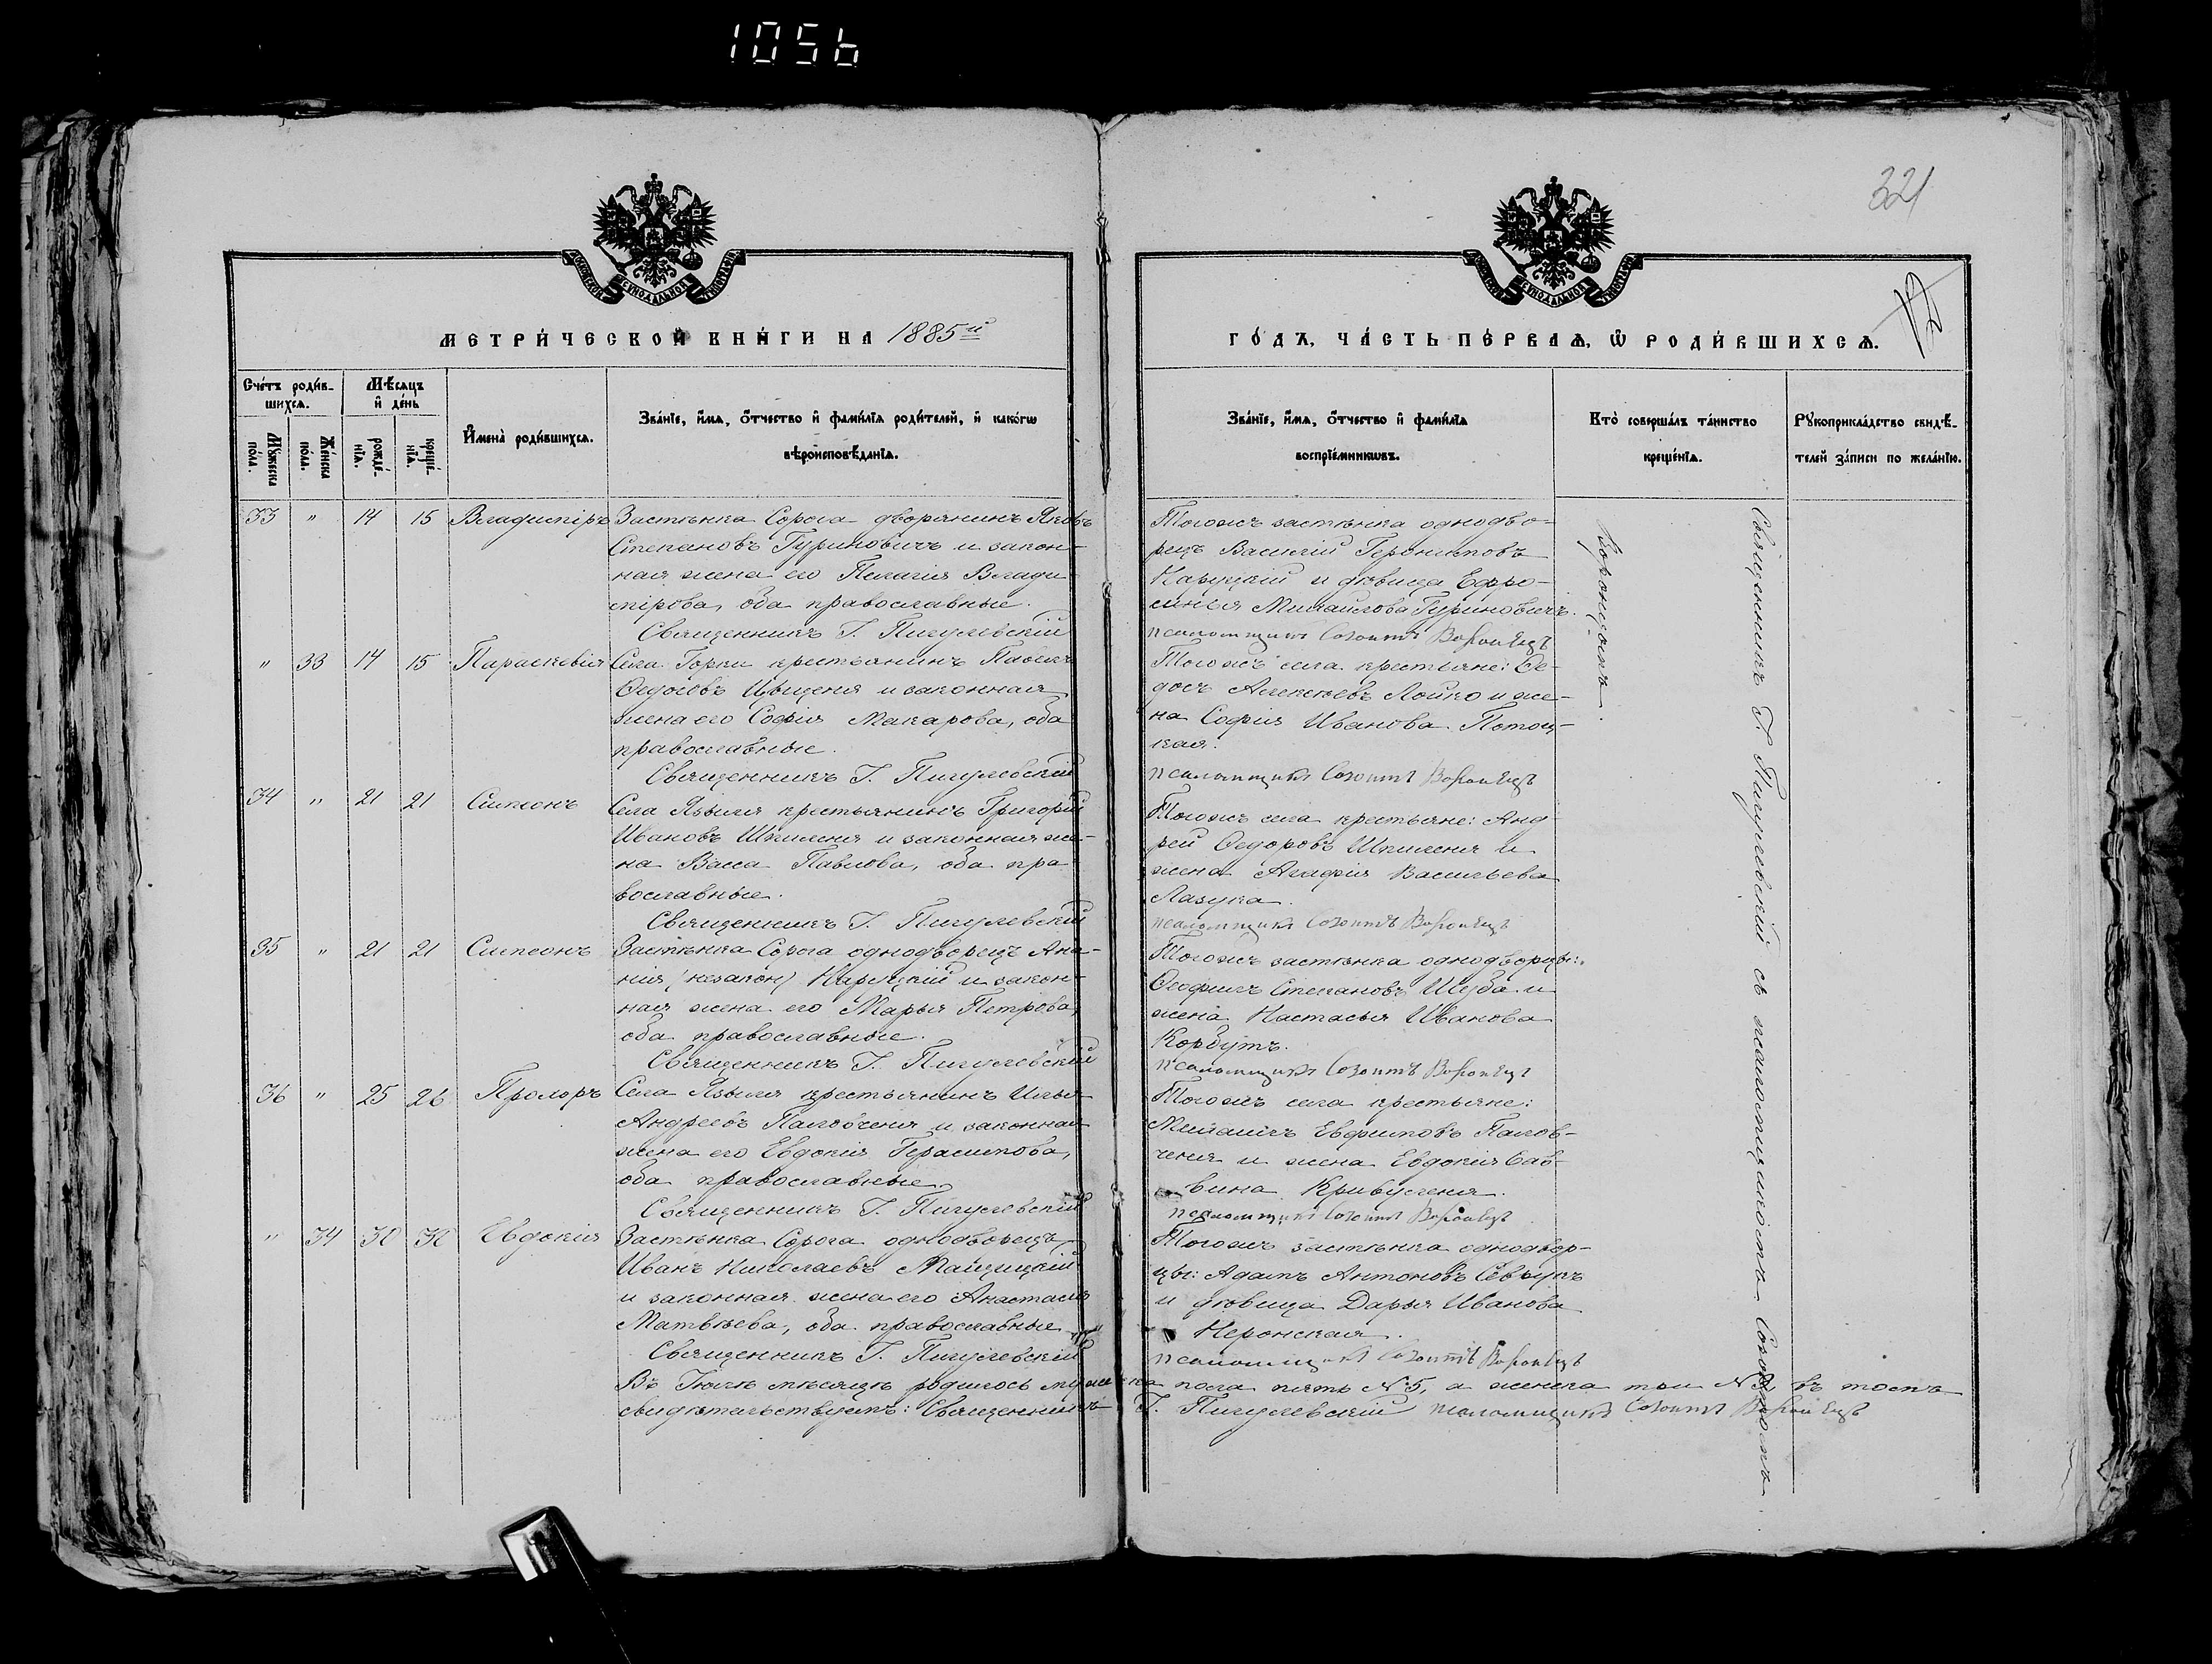 1056
321
МОСКОВСКОЙ СѴНОДАЛЬНОЙ ТИПОГРАФІИ
МОСКОВСКОЙ СѴНОДАЛЬНОЙ ТИПОГРАФІИ
МЕТРИ́ЧЕСКОЙ КНИ́ГИ НА 1885й
ГО́ДЪ, ЧА́СТЬ ПЕ́РВАѦ, Ѽ РОДИ́ВШИХСѦ.
Сче́тъ роди́в-
шихсѧ.
Мѣ́сѧцъ
и҆ де́нь
Мꙋ́жеска по́ла.
Же́нска по́ла.
рожде́-нїѧ.
креще́-нїѧ.
И҆мена̀ роди́вшихсѧ.
Зва́нїе, и҆́мѧ, ѻ҆́тчество и҆ фами́лїѧ роди́телей, и҆ како́гѡ
вѣроисповѣ́данїѧ.
Зва́нїе, и҆́мѧ, ѻ҆́тчество и҆ фами́лїѧ
воспрїе́мникѡвъ.
Кто̀ соверша́лъ та́инство
креще́нїѧ.
Рꙋкоприкла́дство свидѣ́-
телей за́писи по жела́нїю.
33 " 14 15 Владиміръ Застѣнка Сорога дворянинъ Яковъ
Степановъ Гуриновичъ и закон-
ная жена его Пелагія Влади-
мірова, оба православные.
Священникъ Г. Пигулевскій
Тогожъ застѣнка однодво-
рецъ Василій Геронимовъ
Каруцкій и дѣвица Ефро-
синья Михайлова Гуриновичъ.
псаломщикъ Созонтъ Воронецъ
" 33 14 15 Параскевія Села Горки крестьянинъ Павелъ
Федосовъ Цыценя и законная
жена его Софія Макарова, оба
православные.
Священникъ Г. Пигулевскій
Тогожъ села крестьяне: Фе-
досъ Алексѣевъ Лойко и же-
на Софія Иванова Потоц-
кая.
псаломщикъ Созонтъ Воронецъ
34 " 21 21 Симеонъ Села Языля крестьянинъ Григорій
Ивановъ Шпиленя и законная же-
на Васса Павлова, оба пра-
вославные.
Священникъ Г. Пигулевскій
Тогожъ села крестьяне: Анд-
рей Федоровъ Шпиленя и
жена Агафія Васильева
Лазука.
псаломщикъ Созонтъ Воронецъ
35 " 21 21 Симеонъ Застѣнка Сорога однодворецъ Ана-
нія (незакон) Каруцкій и закон-
ная жена его Марья Петрова,
оба православные.
Священникъ Г. Пигулевскій
Тогожъ застѣнка однодворцы:
Феофилъ Степановъ Шуба и
жена Настасья Иванова
Корбутъ.
псаломщикъ Созонтъ Воронецъ
36 " 25 26 Пролоръ Села Языля крестьянинъ Илья
Андреевъ Паловченя и законная
жена его Евдокія Герасимова,
оба православные.
Священникъ Г. Пигулевскій
Тогожъ села крестьяне:
Михаилъ Евфимовъ Палов-
ченя и жена Евдокія Сав-
вина Кривуленя.
псаломщикъ Созонтъ Воронецъ
" 34 30 30 Евдокія Застѣнка Сорога однодворецъ
Иванъ Николаевъ
и законная жена его Анастасія
Матвѣева, оба православные
Священникъ Г. Пигулевскій
Тогожъ застѣнка однодвор-
цы: Адамъ Антоновъ Севрукъ
и дѣвица Дарья Иванова
Неронская.
псаломщикъ Созонтъ Воронецъ
Въ Іюлѣ мѣсяцѣ родилось мужеска пола пять № 5, а женска три № 3, въ томъ
свидѣтельствуемъ: Священникъ Г. Пигулевскій псаломщикъ Созонтъ Воронецъ
Священникъ Г. Пигулевскій съ псаломщикомъ Созонтомъ
Воронцомъ.